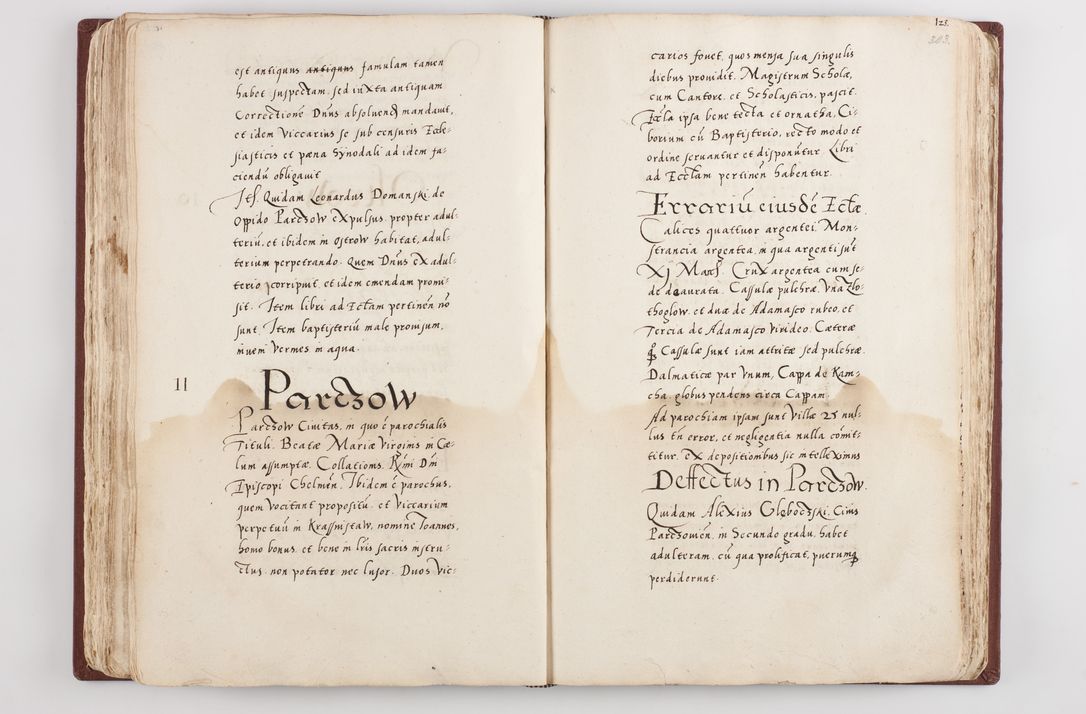 est antiquus antiquus famulam tamen
habet suspectam, sed iuxta antiquam
Correctionē Dn̄us absoluend mandauit,
et idem Viccarius se sub censuris Eccle-
siasticis et pæna Synodali ad idem fa-
ciendū obligauit
Itē Quidam Leonardus Domanski de
Oppido Parczow expulsus propter adul-
teriū, et ibidem in Ostrow habitat, adul-
terium perpetrando. Quem Dn̄us ex adul-
terio corripuit, et idem emendam promi-
sit. Item libri ad Ecclam pertinen̄ nō
sunt. Item baptisteriū male prouisum,
inueni Vermes in aqua.
11
Parczow
Parczow Ciuitas, in quo ē parochialis
Tituli Beatæ Mariæ Virginis in Cæ-
lum assumptæ. Collationis Rmi Dni
Episcopi Chelmen̄. Ibidem ē parochus,
quem Vocitant propositū et Viccarium
perpetuū in Krassnistaw, nomine Ioannes,
homo bonus et bene in lris sacris instru-
ctus, non potator nec lusor. Duos Vic-
125.
303.
carios fouet, quos mensa sua singulis
diebus prouidit. Magistrum Scholæ,
cum Cantore et Scholasticis, pascit.
Eccla ipsa bene tecta et ornatha, Ci-
borium cū Baptisterio, recto modo et
ordine seruantur et disponūtur. Libri
ad Ecclam pertinen̄ habentur.
Errariū eiusdē Ecclæ
Calices quattuor argentei. Mon-
strancia argentea, in qua argenti sūt
XI March. Crux argentea cum se-
de deaurata. Cassulæ pulchræ, Vna Zlo-
thoglow, et duæ de Adamasco rubeo, et
Tercia de Adamasco Virideo. Cæteræ
Cassulæ sunt iam attritæ sed pulchræ.
Dalmaticæ par Vnum, Cappa de Kam-
cha, globus pendens circa Cappam.
Ad parochiam ipsam sunt Villæ 25 nul-
lus tn̄ error, et negligentia nulla comit-
titur, ex depositionibus sic intelleximus
Deffectus in Parczow.
Quidam Alexius Gleboczki, Ciuis
Parczouien̄, in Secundo gradu, habet
adulteram, cū qua prolificat, puerumq
perdiderunt.